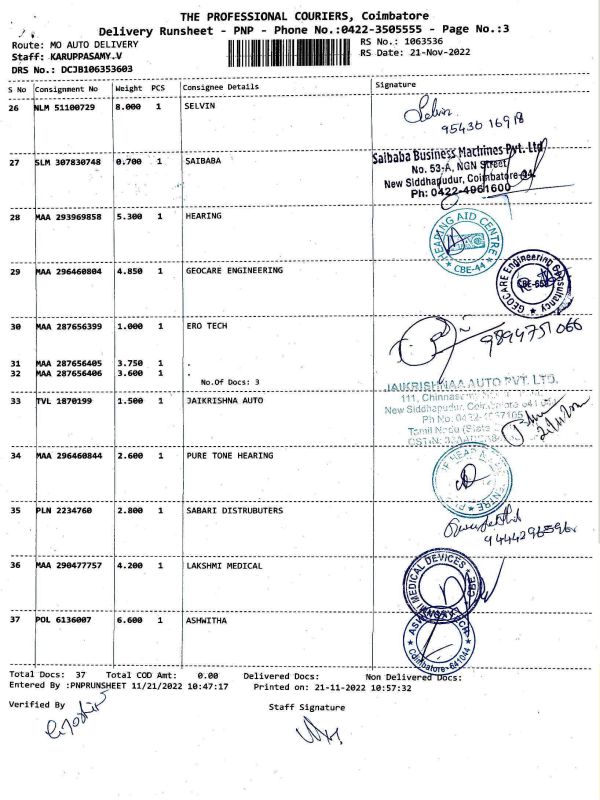 THE PROFESSIONAL COURIERS, Coimbatore
Delivery Runsheet - PNP - Phone No.:0422-3505555 - Page No.:3
Route: MO AUTO DELIVERY
RS No.: 1063536
Staff: KARUPPASAMY.V
RS Date: 21-Nov-2022
DRS No.: DCJB106353603
S No Consignment No Weight PCS Consignee Details Signature
26 NLM 51100729 8.000 1 SELVIN
Selvin
95430 16918
27 SLM 307830748 0.700 1 SAIBABA
Saibaba Business Machines Pvt. Ltd
No. 53-A, NGN Street
New Siddhapudur, Coimbatore-44.
Ph: 0422-4961600
28 MAA 293969858 5.300 1 HEARING
HEARING AID CENTRE
CBE-44
29 MAA 296460804 4.850 1 GEOCARE ENGINEERING
GEOCARE Engineering Consultancy
30 MAA 287656399 1.000 1 ERO TECH
9894751066
31 MAA 287656405 3.750 1 .
32 MAA 287656406 3.600 1 .
No.Of Docs: 3
33 TVL 1870199 1.500 1 JAIKRISHNA AUTO
JAIKRISHNAA AUTO PVT. LTD.
111,
New Siddhapudur,
Ph No:
Tamil Nadu (State
34 MAA 296460844 2.600 1 PURE TONE HEARING
35 PLN 2234760 2.800 1 SABARI DISTRUBUTERS
9444296596
36 MAA 290477757 4.200 1 LAKSHMI MEDICAL
MEDICAL DEVICES
CBE
37 POL 6136007 6.600 1 ASHWITHA
Coimbatore-641044
Total Docs: 37 Total COD Amt: 0.00 Delivered Docs: Non Delivered Docs:
Entered By :PNPRUNSHEET 11/21/2022 10:47:17 Printed on: 21-11-2022 10:57:32
Verified By
Staff Signature